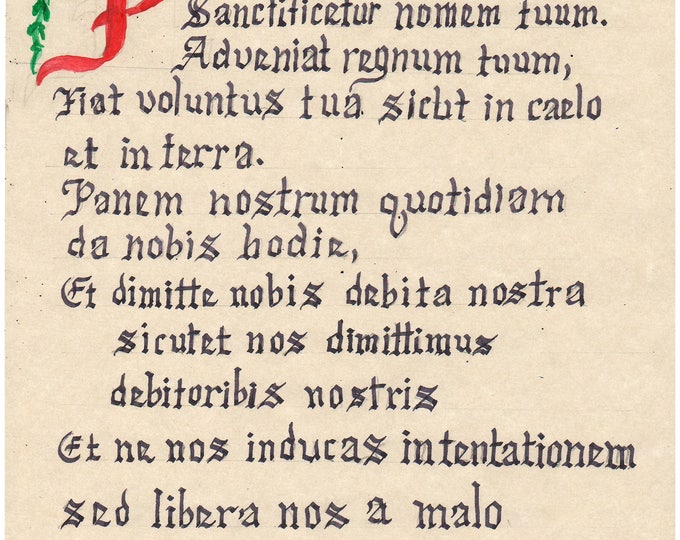 Sanctificetur nomem tuum.
Adveniat regnum tuum,
Fiat voluntus tua sicut in caelo
et in terra.
Panem nostrum quotidiam
da nobis hodie,
Et dimitte nobis debita nostra
sicutet nos dimittimus
debitoribis nostris
Et ne nos inducas intentationem
sed libera nos a malo